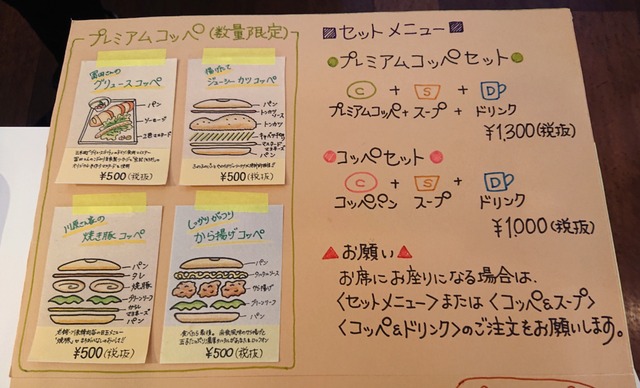 プレミアムコッペ(数量限定)
冨田さんの
グリュースコッペ
パン
ソーセージ
¥500(税抜)
揚げたて
ジューシーカツコッペ
パン
トンカツソース
トンカツ
キャベツ
マスタード
マヨネーズ
パン
¥500(税抜)
焼き豚コッペ
パン
タレ
焼豚
グリーンリーフ
からし
マヨネーズ
パン
¥500(税抜)
しっかりがっつり
から揚げコッペ
パン
から揚げ
グリーンリーフ
マヨネーズ
パン
¥500(税抜)
セットメニュー
プレミアムコッペセット
C + S + D
プレミアムコッペ+スープ+ドリンク
¥1,300(税抜)
コッペセット
C + S + D
コッペパン スープ ドリンク
¥1,000(税抜)
お願い
お席にお座りになる場合は、
<セットメニュー>または<コッペ&スープ>
<コッペ&ドリンク>のご注文をお願いします。